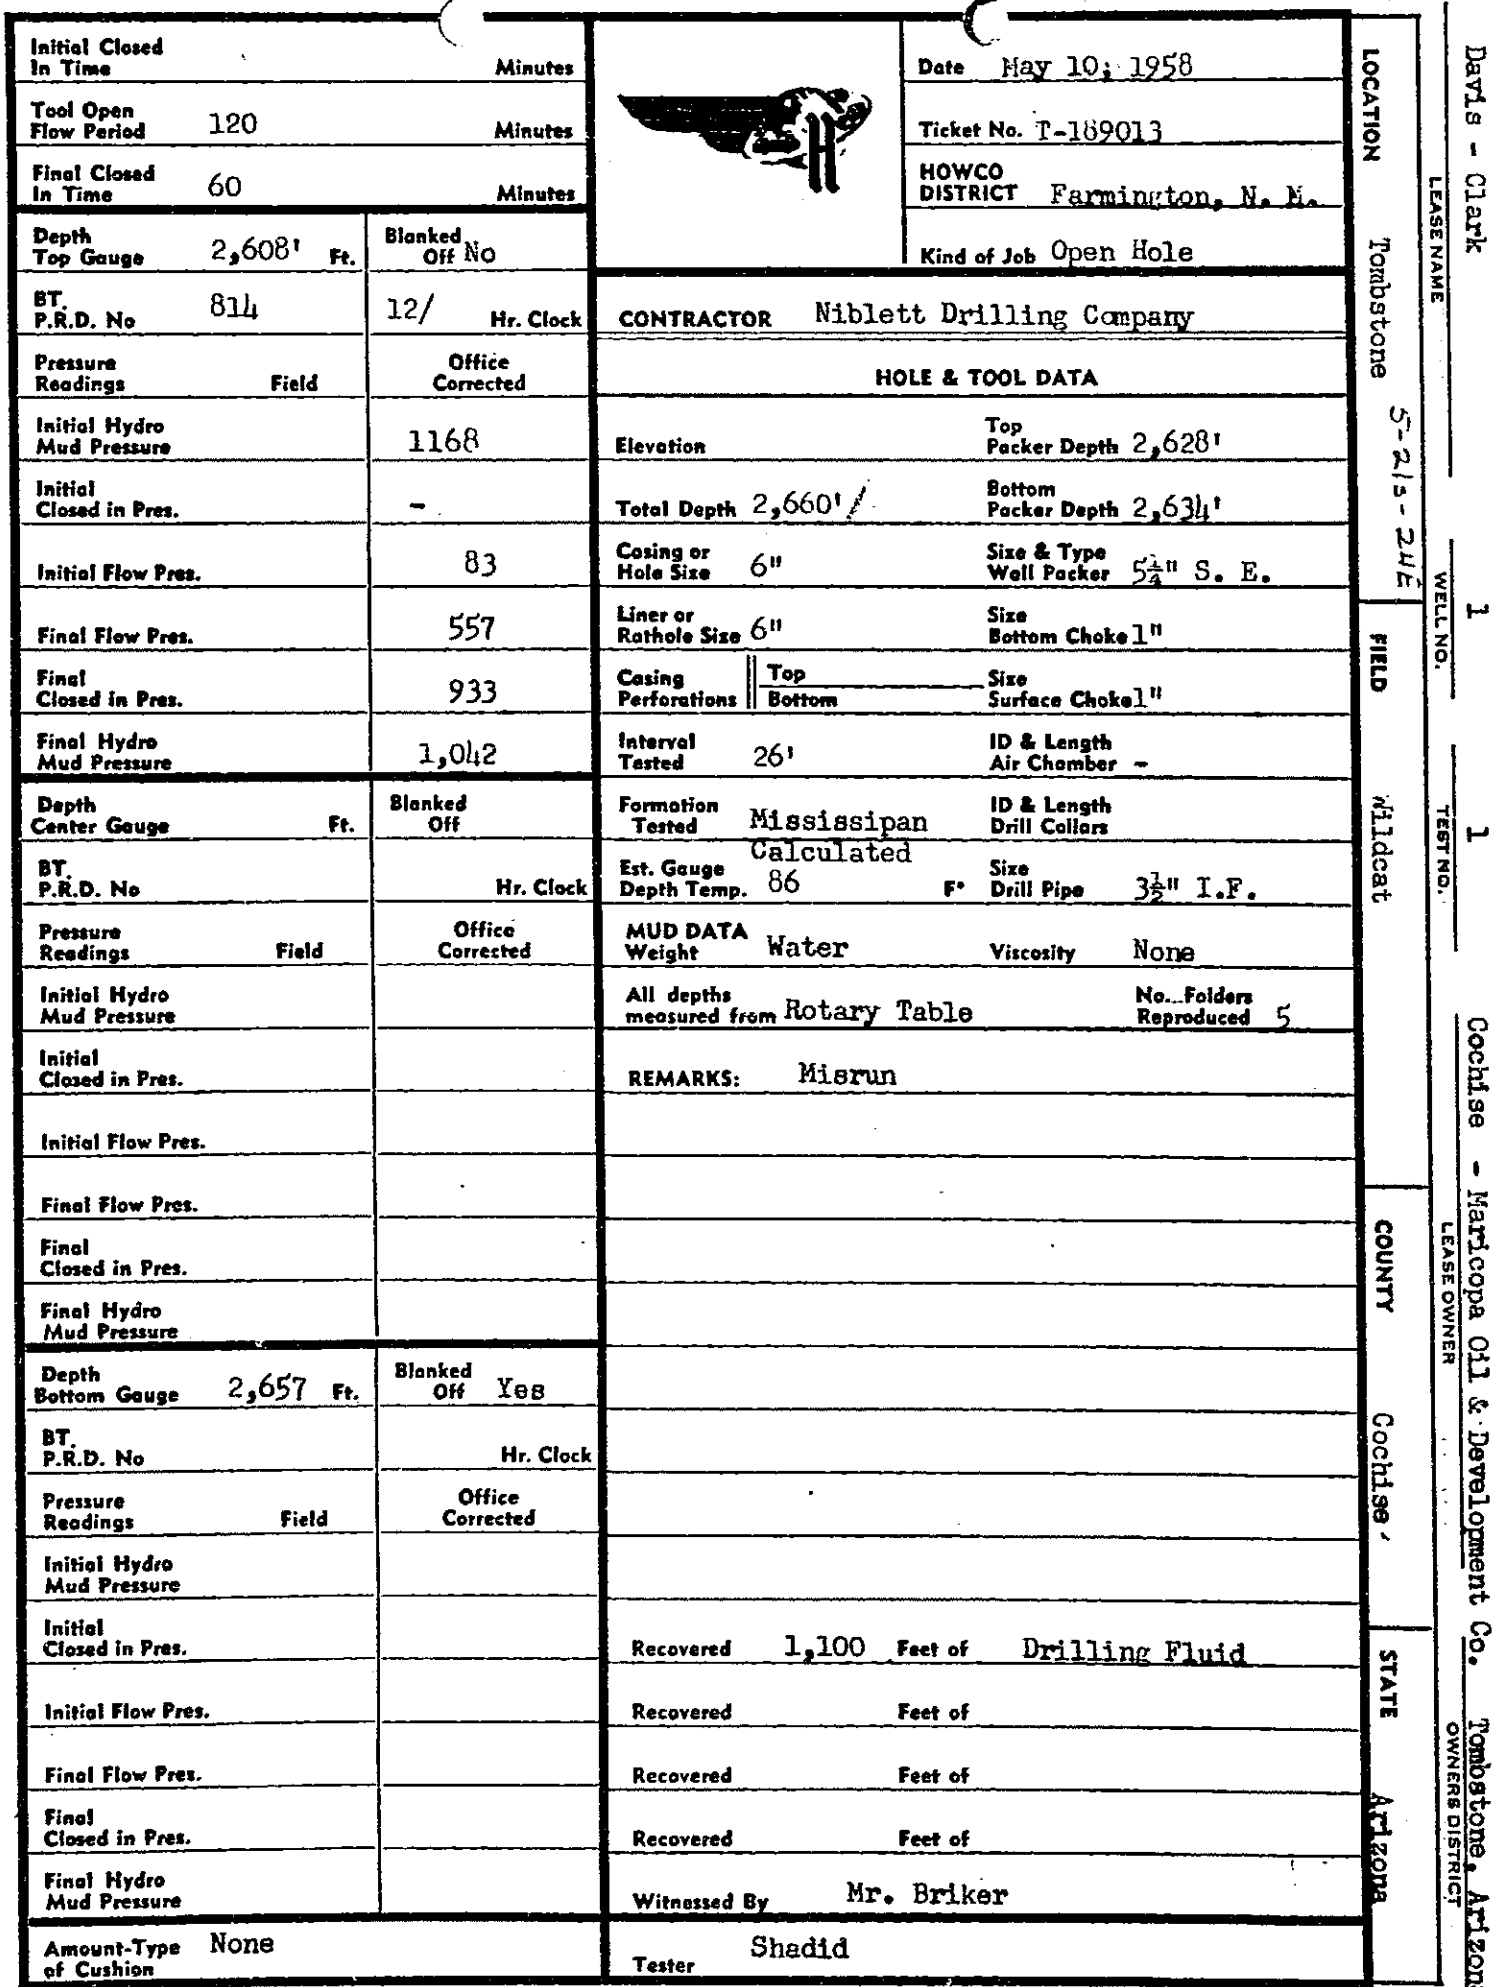 Initial Closed
In Time Minutes
Tool Open
Flow Period 120 Minutes
Final Closed
In Time 60 Minutes
Depth
Top Gauge 2,608' Ft.
Blanked
Off No
BT.
P.R.D. No 814 12/ Hr. Clock
Pressure
Readings Field
Office
Corrected
Initial Hydro
Mud Pressure 1168
Initial
Closed in Pres. -
Initial Flow Pres. 83
Final Flow Pres. 557
Final
Closed in Pres. 933
Final Hydro
Mud Pressure 1,042
Depth
Center Gauge Ft.
Blanked
Off
BT.
P.R.D. No Hr. Clock
Pressure
Readings Field
Office
Corrected
Initial Hydro
Mud Pressure
Initial
Closed in Pres.
Initial Flow Pres.
Final Flow Pres.
Final
Closed in Pres.
Final Hydro
Mud Pressure
Depth
Bottom Gauge 2,657 Ft.
Blanked
Off Yes
BT.
P.R.D. No Hr. Clock
Pressure
Readings Field
Office
Corrected
Initial Hydro
Mud Pressure
Initial
Closed in Pres.
Initial Flow Pres.
Final Flow Pres.
Final
Closed in Pres.
Final Hydro
Mud Pressure
Amount-Type
of Cushion None
H
Date May 10, 1958
Ticket No. T-189013
HOWCO
DISTRICT Farmington, N. M.
Kind of Job Open Hole
CONTRACTOR Niblett Drilling Company
HOLE & TOOL DATA
Elevation
Top
Packer Depth 2,628'
Total Depth 2,660'/
Bottom
Packer Depth 2,634'
Casing or
Hole Size 6"
Size & Type
Wall Packer 5¼" S. E.
Liner or
Rathole Size 6"
Size
Bottom Choke 1"
Casing
Perforations
Top
Bottom
Size
Surface Choke 1"
Interval
Tested 26'
ID & Length
Air Chamber -
Formation
Tested Mississipan
ID & Length
Drill Collars
Calculated
Est. Gauge
Depth Temp. 86 F°
Size
Drill Pipe 3½" I.F.
MUD DATA
Weight Water
Viscosity None
All depths
measured from Rotary Table
No. Folders
Reproduced 5
REMARKS: Misrun
Recovered 1,100 Feet of Drilling Fluid
Recovered Feet of
Recovered Feet of
Recovered Feet of
Witnessed By Mr. Briker
Tester Shadid
LOCATION Tombstone 5-21s-24E
FIELD Wildcat
COUNTY Cochise
STATE Arizona
Davis - Clark
LEASE NAME
1
WELL NO.
1
TEST NO.
Cochise - Maricopa Oil & Development Co.
LEASE OWNER
Tombstone, Arizona
OWNERS DISTRICT